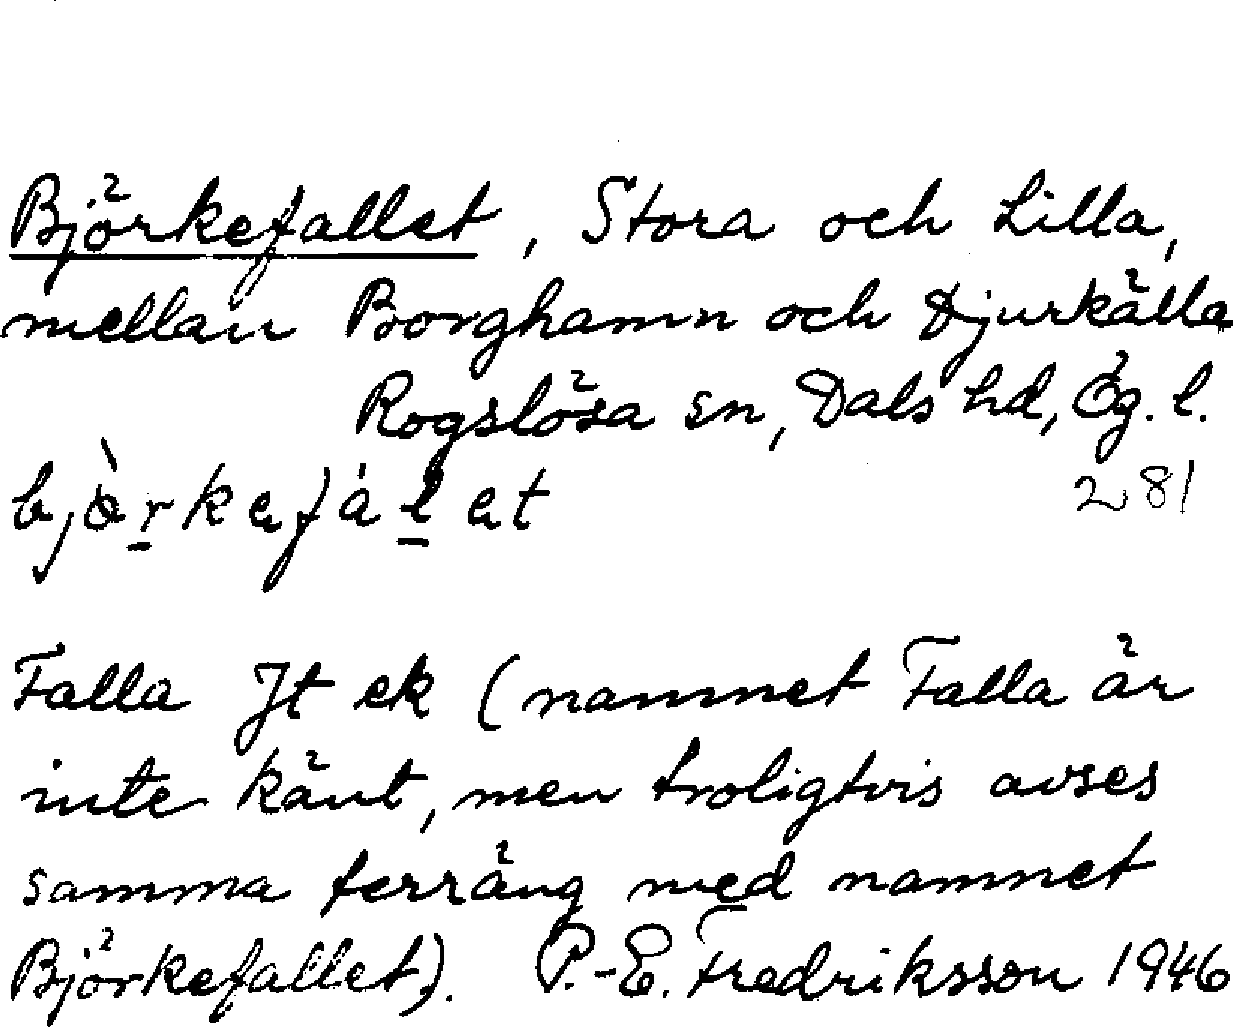 Björkefallet, Stora och Lilla,
mellan Borghamn och Djurkälla
Rogslösa sn, Dals hd, Ög. l.
bjòrkefálet
281
Falla Jt ek (namnet Falla är
inte känt, men troligtvis avses
samma terräng med namnet
Björkefallet). P.-E. Fredriksson 1946